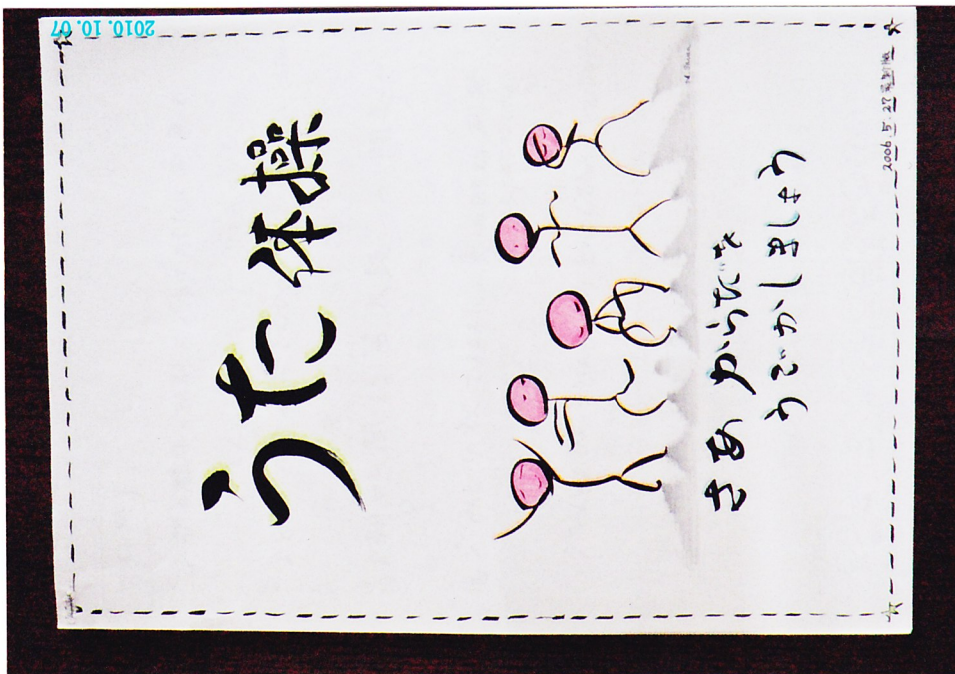 うた体操
さあ からだを
うごかしましょう
2006.5.27
2010.10.07